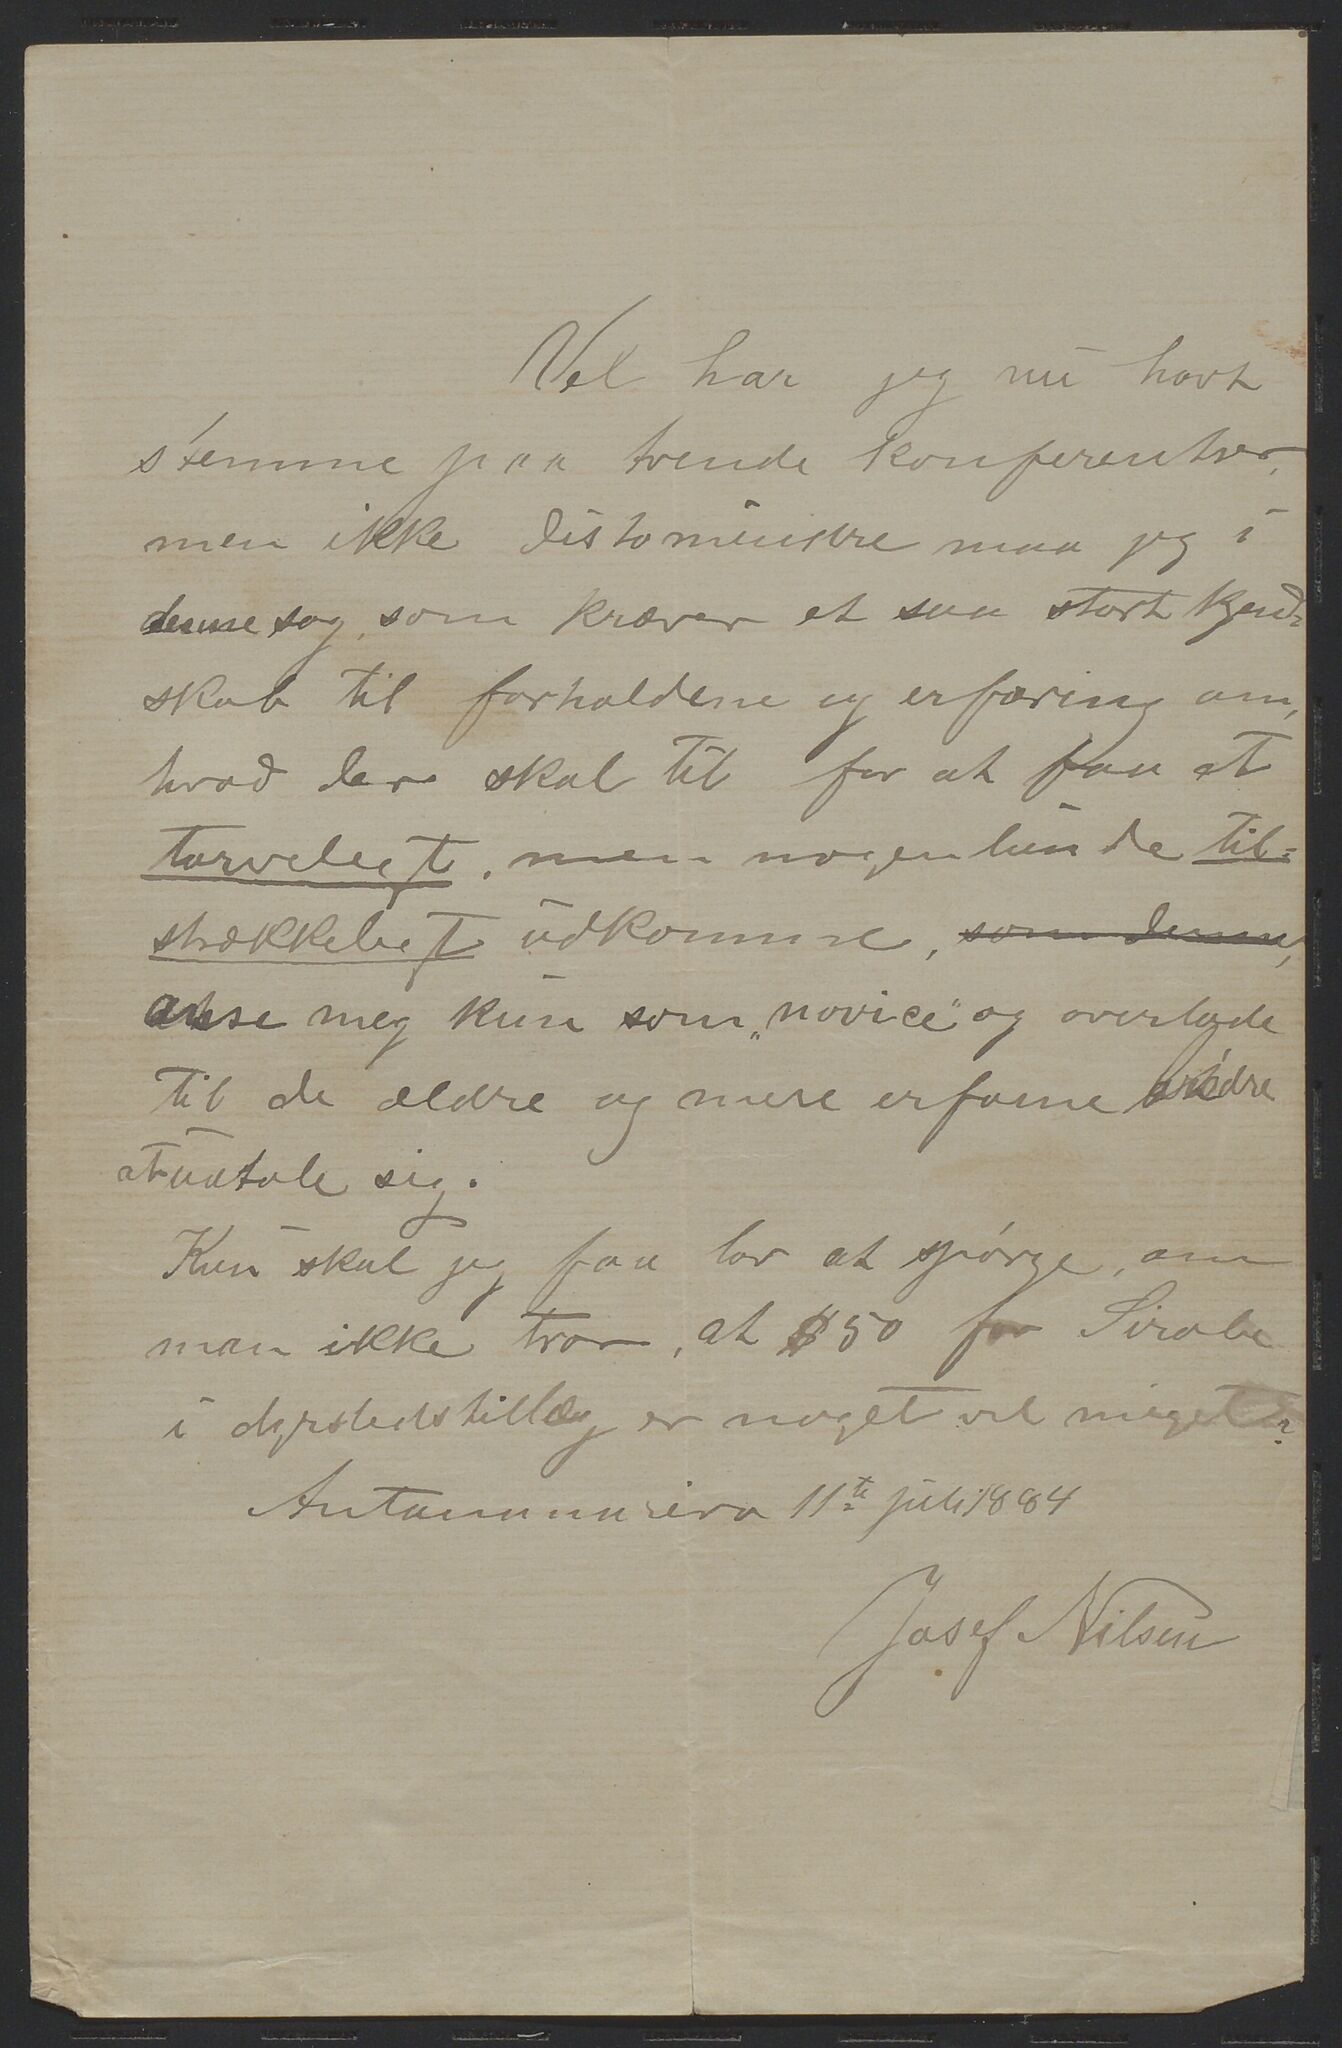 Vel har jeg nu havt
stemme paa trende konferentser,
men ikke distomindre maa jeg i
denne sag, som kræver et saa stort kjend-
skab til forholdene og erfaring om,
hvad der skal til for at faa et
tarveligt, men nogenlunde til-
strækkeligt udkomme, som denne,
anse meg kun som "novice" og overlade
til de ældre og mere erfarne brødre
at udtale sig.
Kun skal jeg faa lov at spørge, om
man ikke tror, at $50 for Sirabe
i dyrstedstillæg er noget vel meget?
Antanamasina 11te juli 1884
Josef Nilsen